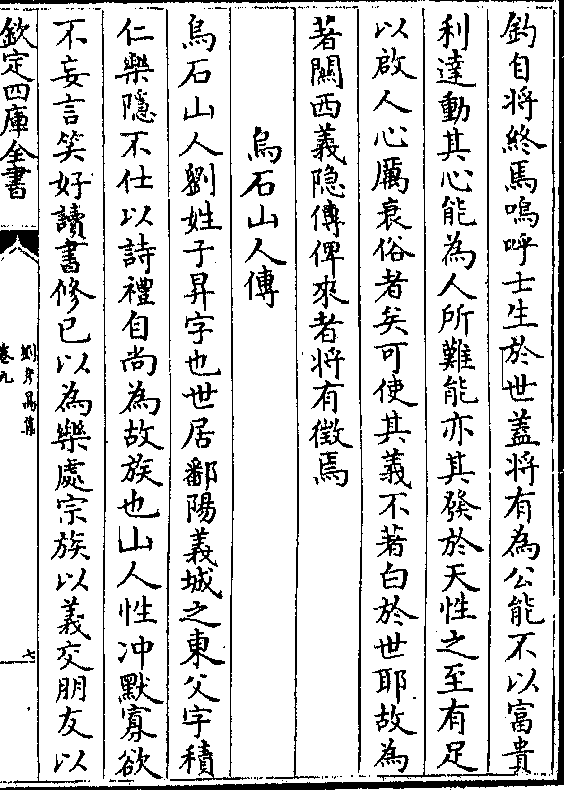 釣自將終焉嗚呼士生於世蓋將有為公能不以富貴
利達動其心能為人所難能亦其發於天性之至有足
以啟人心厲衰俗者矣可使其義不著白於世耶故為
著關西義隐傳俾來者將有徵焉
烏石山人傳
烏石山人劉姓子昇字也世居鄱陽義城之東父字積
仁樂隱不仕以詩禮自尚為故族也山人性冲默寡欲
不妄言笑好讀書修已以為樂處宗族以義交朋友以
欽定四庫全書
劉彦昺集
卷九
七